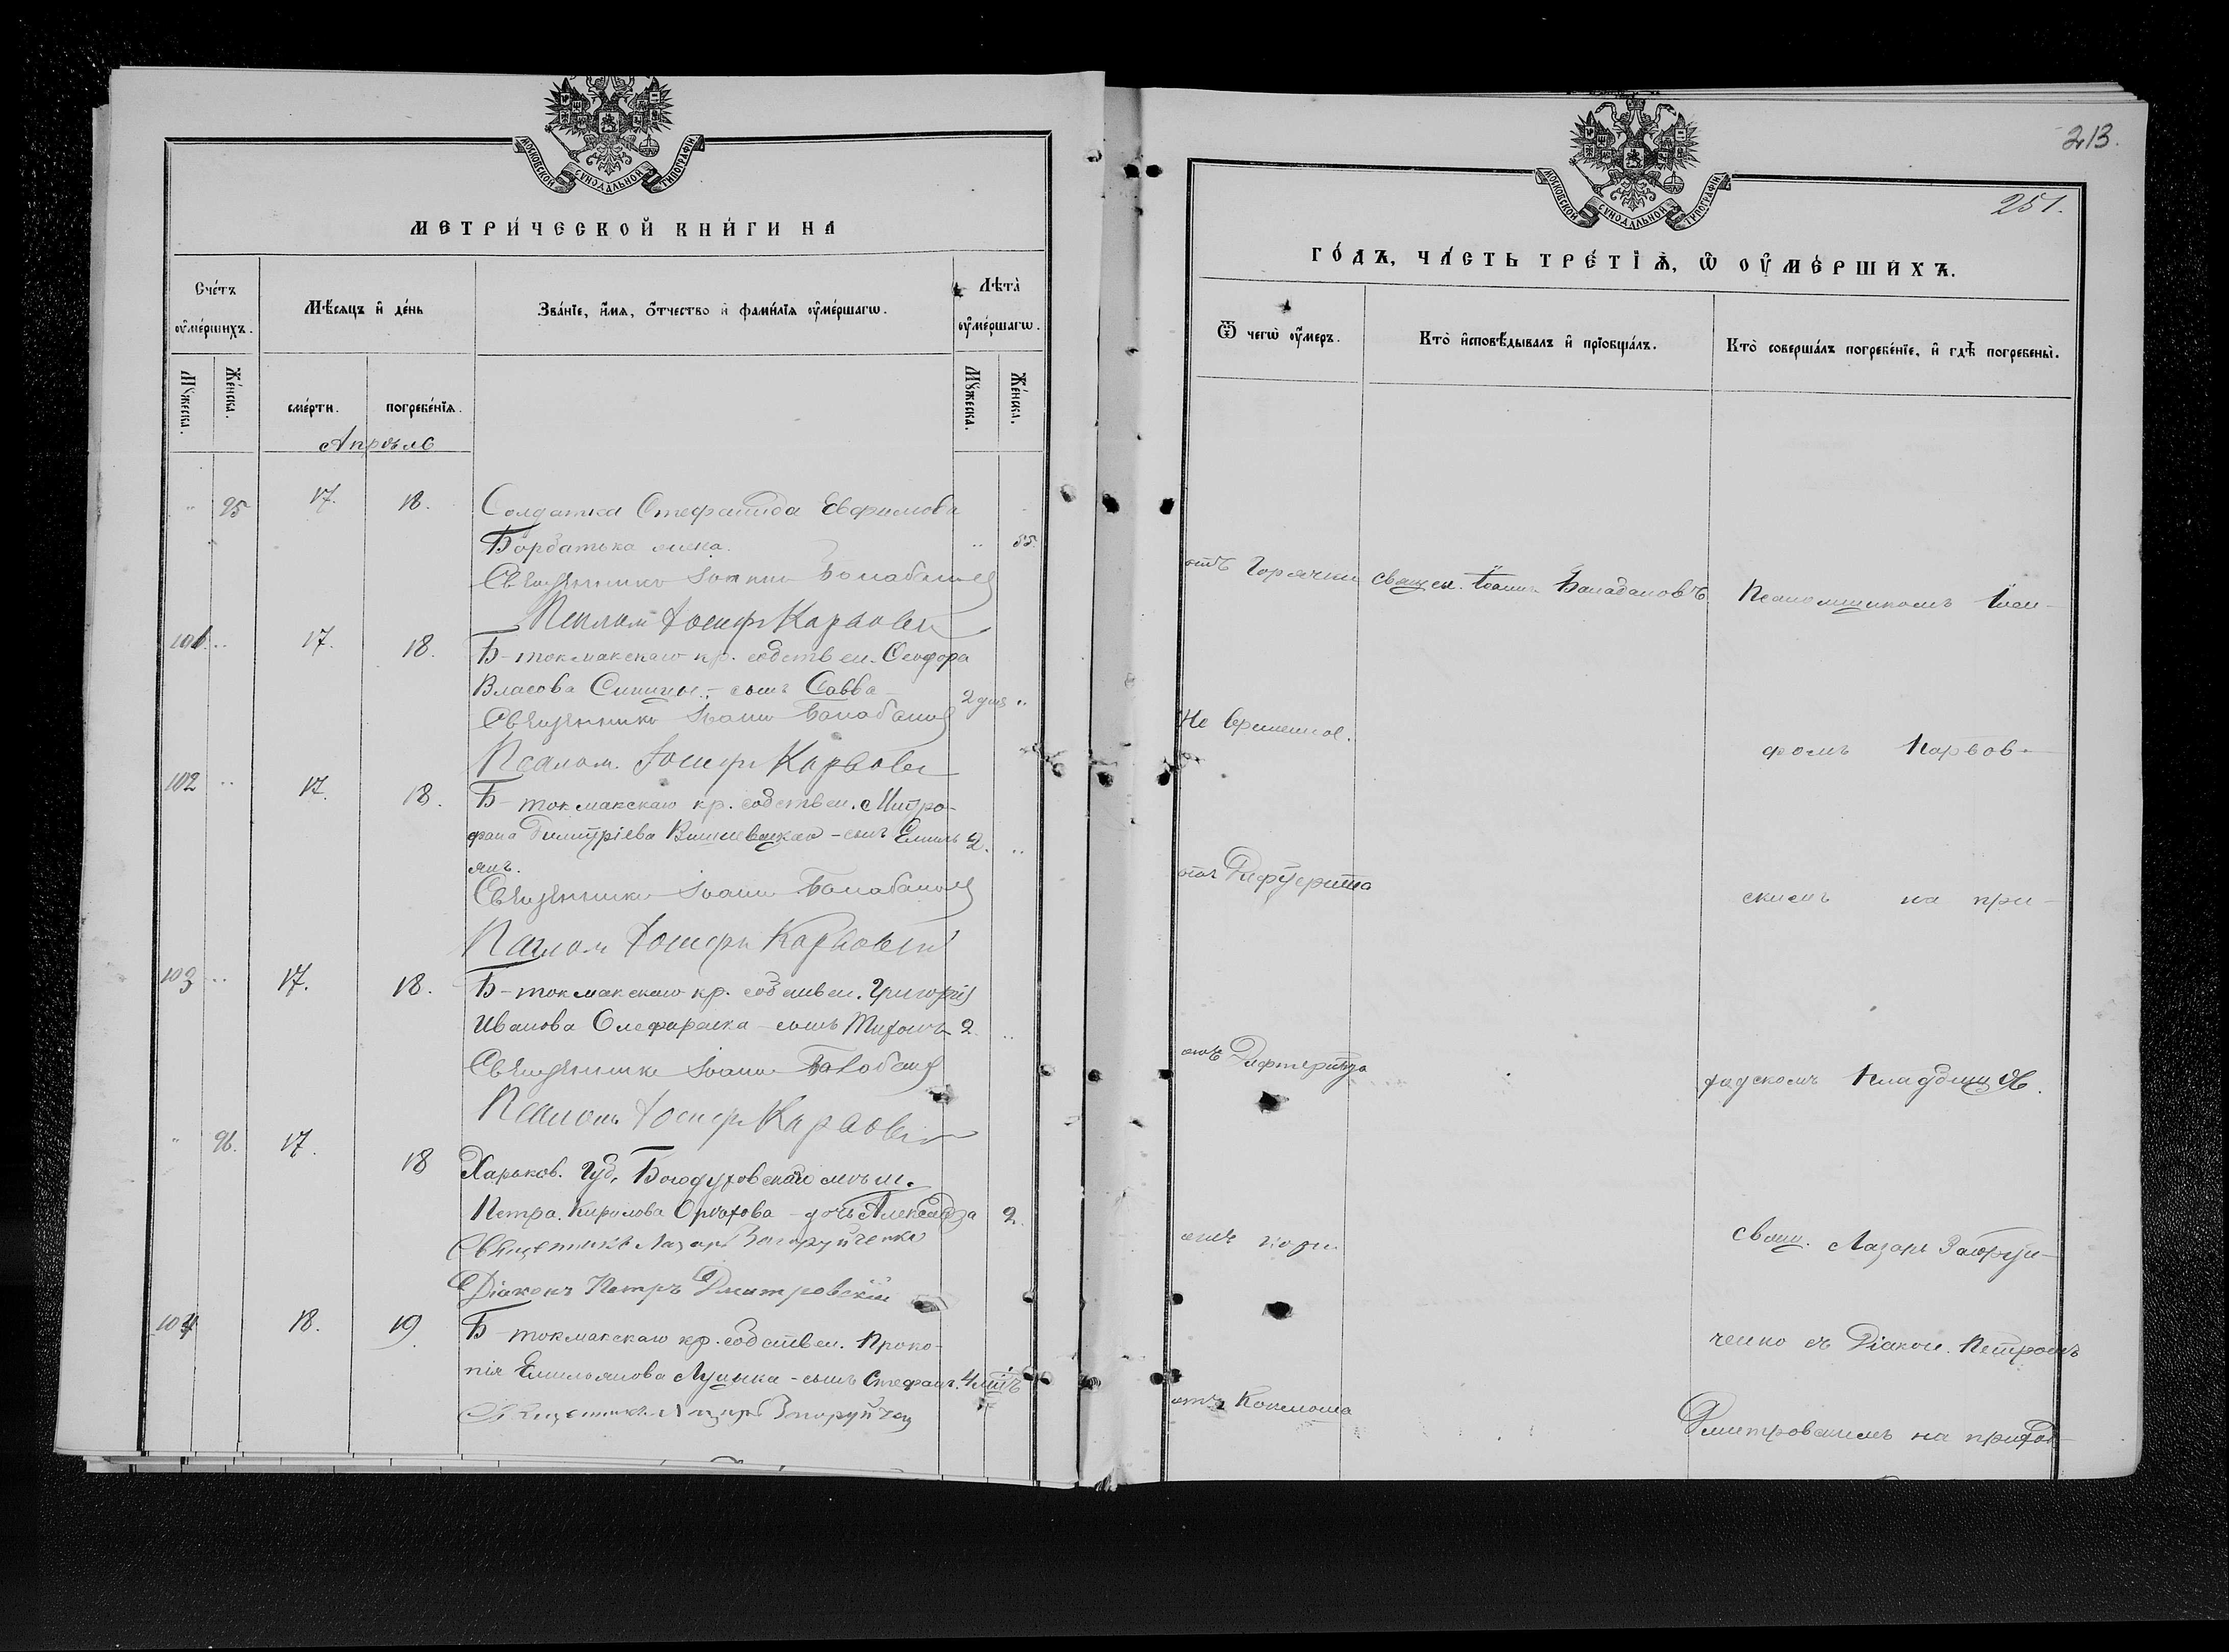 МОСКОВСКОЙ СѴНОДАЛЬНОЙ ТИПОГРАФІИ
МЕТРИ́ЧЕСКОЙ КНИ́ГИ НА
Сче́тъ ᲂу҆ме́ршихъ.
Мѣ́сяцъ и҆ де́нь
Зва́нїе, и҆́мя, ѻ҆́тчество и҆ фами́лїя ᲂу҆ме́ршагѡ.
Лѣта̀ ᲂу҆ме́ршагѡ.
Мꙋ́жеска.
Же́нска.
сме́рти.
погребе́нїя.
Мꙋ́жеска.
Же́нска.
Апрѣль
" 95 17. 18. Солдатка Стефанида Евфимова
Борбатька жена. " 85
Священникъ Іоаннъ Балабановъ
Псалом Іосифъ Карвовскі
101 " 17. 18. Б-токмакскаго кр. собствен. Ѳеодора
Власова Синицы. - сынъ Савва - 2 дня "
Священникъ Іоаннъ Балабановъ
Псалом. Іосифъ Карвовскі
102 " 17. 18. Б-токмакскаго кр. собствен. Митро-
фана Димитріева Вишневецкаго - сынъ Емиль 2. "
янъ.
Священникъ Іоаннъ Балабановъ
Псалом Іосифъ Карвовскій
103 " 17. 18. Б-токмакскаго кр. собствен. Григорія
Иванова Олефиренка - сынъ Тихонъ 2 "
Священникъ Іоаннъ Балабановъ
Псаломъ Іосифъ Карвовскі
" 96. 17. 18 Харьков. Губ. Богодуховскаго мѣщ.
Петра Кирилова Орѣхова - дочь Александра 2.
Священникъ Лазарь Загоруйченко
Діаконъ Петръ Дмитровскій
104 18. 19. Б-токмакскаго кр. собствен. Проко-
пія Емиліанова Луценка - сынъ Стефанъ. 4 лѣтъ
Священникъ Лазарь Загоруйчен
213.
251.
МОСКОВСКОЙ СѴНОДАЛЬНОЙ ТИПОГРАФІИ
ГО́ДЪ, ЧА́СТЬ ТРЕ́ТІѦ, Ѡ ОУ҆МЕ́РШИХЪ.
Ѿ чегѡ̀ ᲂу҆́меръ.
Кто̀ и҆сповѣ́дывалъ и҆ прїобща́лъ.
Кто̀ соверша́лъ погребе́нїе, и҆ гдѣ̀ погребены̀.
отъ Горячки Священ. Іоаннъ Балабановъ Псаломщикомъ Іоси-
Не временное. фомъ Карвов-
отъ Дифтерита скимъ на при-
отъ Дифтерита ходскомъ Кладбищѣ.
отъ кори Свящ. Лазарь Загоруй-
ченко съ Діакон. Петромъ
отъ Коклюша
Дмитровскимъ на приход-